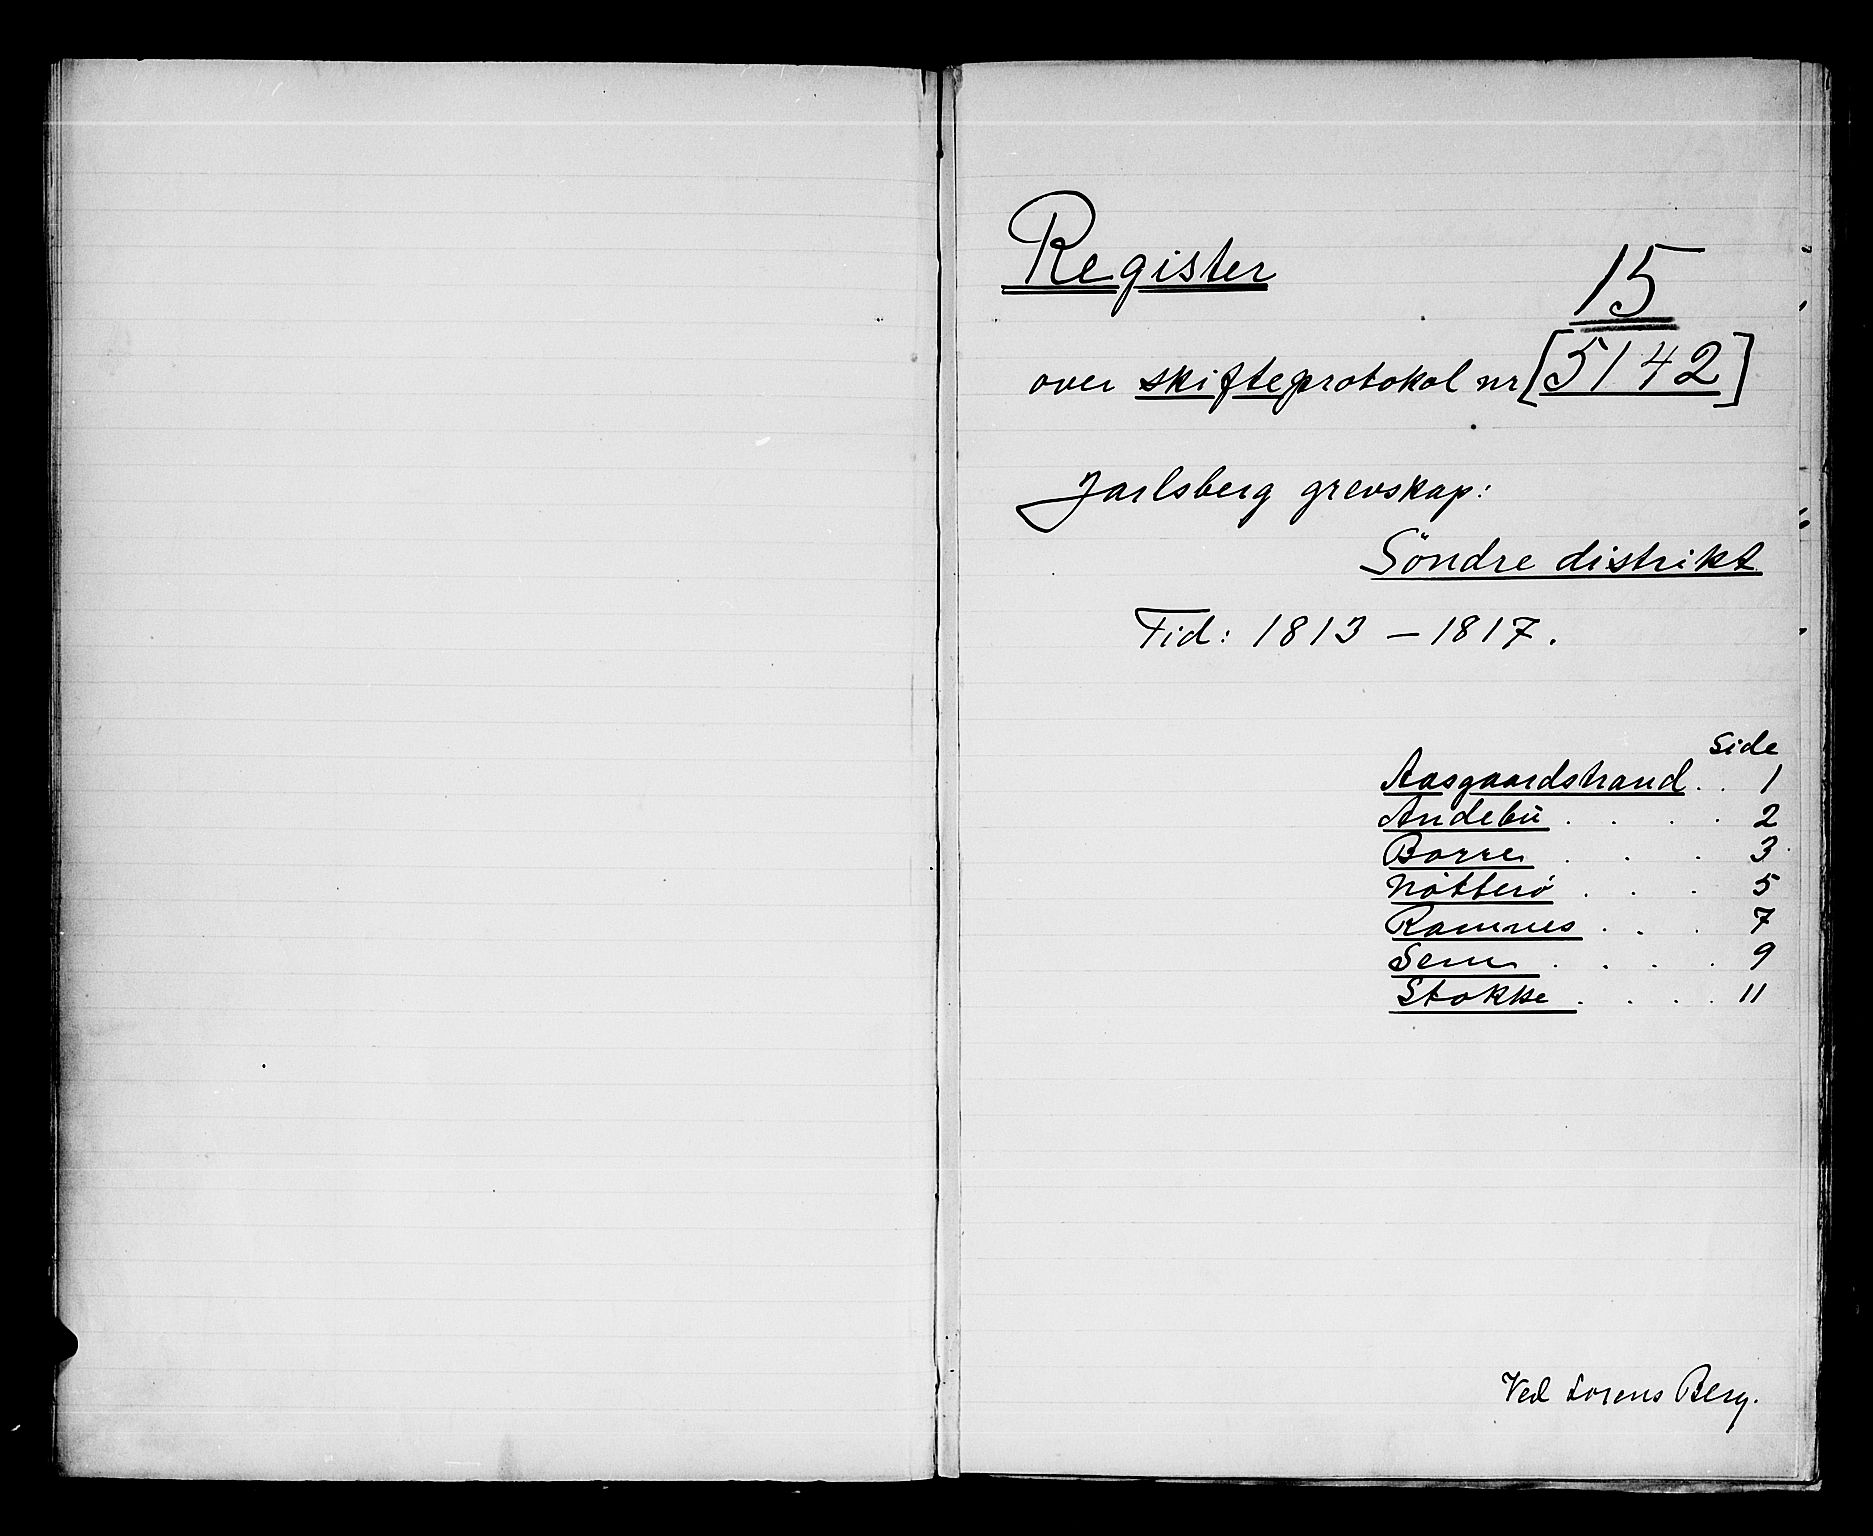 Register
15
over skifteprotokol nr [5142]
Jarlsberg grevskap:
Söndre distrikt
Tid: 1813 – 1817.
Side
Aasgaardstrand . . 1
Andebu . . . . 2
Borre . . . 3
Nötterö . . . 5
Ramnes . . . 7
Sem . . . . 9
Stokke . . . . 11
Ved Lorens Berg.